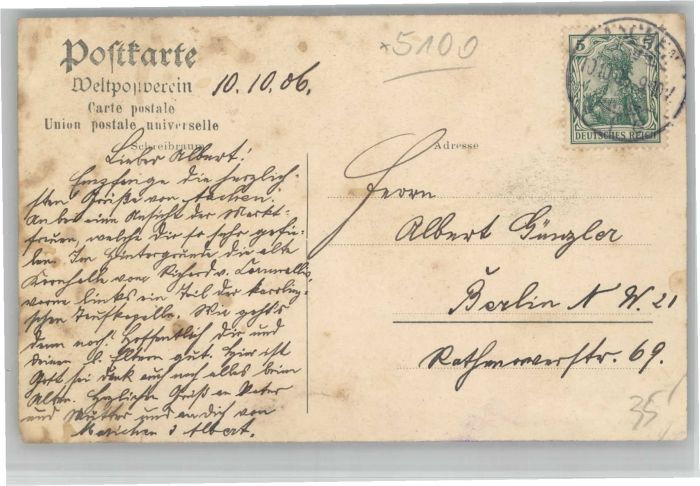 Postkarte
Weltpostverein
Carte postale
Union postale universelle
Schreibraum
10.10.06.
*5100
5 5
DEUTSCHES REICH
Lieber Albert!
Empfange die herzlich-
sten Grüße von Aachen.
Anbei eine Ansicht der Markt-
frauen, welche dir so sehr gefie-
len. Im Hintergrunde die alte
Kornhalle vom Richard v.
vorne links ein Teil der karolin-
gischen Taufkapelle. Wie geht's
denn noch? Hoffentlich dir und
deinen l. Eltern gut. Hier ist
Gott sei dank auch noch alles beim
Alten. Herzliche Grüße an Vater
und Mutter und an dich von
Mariechen & Albert.
Adresse
Herrn
Albert Günzler
Berlin N.W. 21
Rathenowerstr. 69.
35